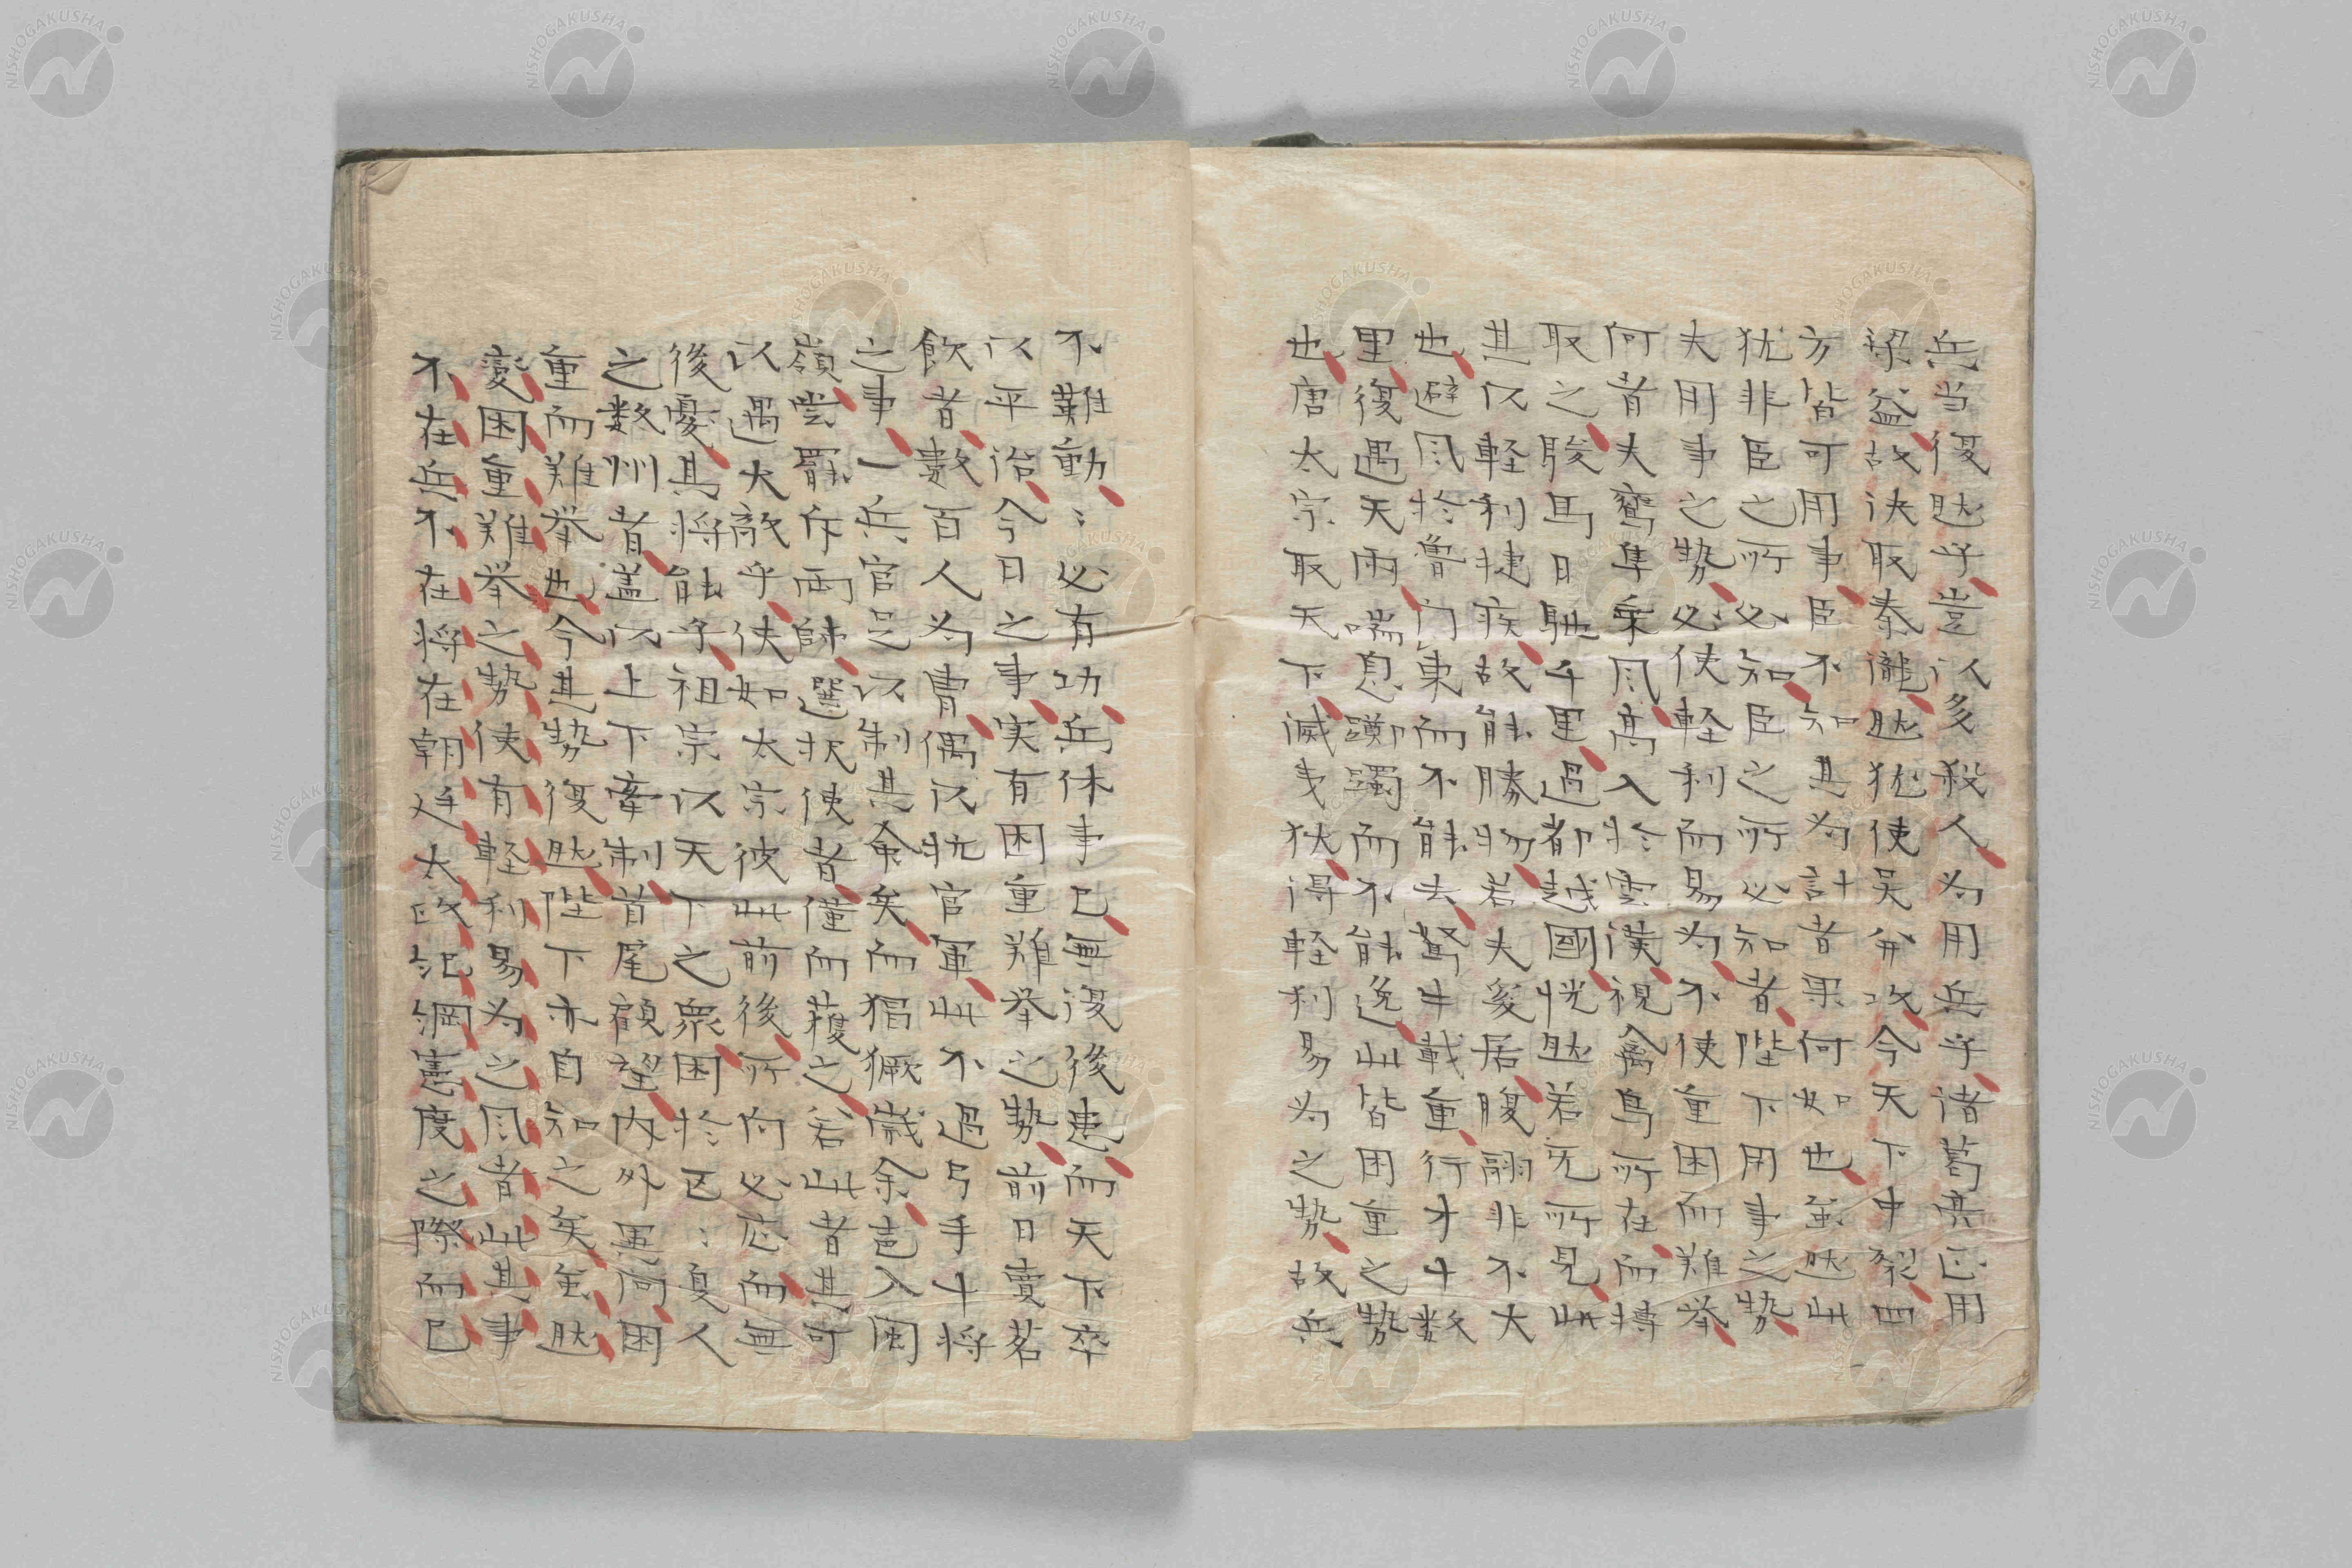 兵当復然乎豈以多殺人為用兵乎諸葛亮区用
梁益故决取秦瀧然犹使吴分攻今天下中裂四
方皆可用事臣不知其為計者果何如也至然此
犹非臣之所必知臣之所必知者陛下用事之勢
夫用事之勢必使軽利而易為不使重困而難挙
何者夫鸞隼乗风高入於雲漢視禽鳥所在而摶
取之駿馬日馳千里過都越國恍然若无所見此
其以軽利捷疾故能勝物若夫爰居腹翮非不大
也避风於魯门東而不能去駑牛載重行才十数
里復遇天雨喘息躑躅而不能逸此皆困重之勢
也唐太宗取天下滅夷狄得軽利易為之勢故兵
不難動〻必有功兵休事已無復後患而天下卒
以平治今日之事実有困重難挙之勢前日賣茗
飲者數百人為曹偶以抗官軍此不過弓手十将
之事一兵官足以制其命矣而猖獗歳余啚入閩
嶺尝罷斥両帥選択使者僅而獲之若此者其可
以遇大敵乎使如太宗彼此前後所向必応而無
後憂其将能乎祖宗以天下之衆困於区〻夏人
之数州者盖以上下牽制首尾顧望内外異同困
重而難挙也今其勢復然陛下亦自知之矣至然
変困重難挙之勢使有軽利易為之风者此其事
不在兵不在将在朝廷大政紀綱憲度之際而已